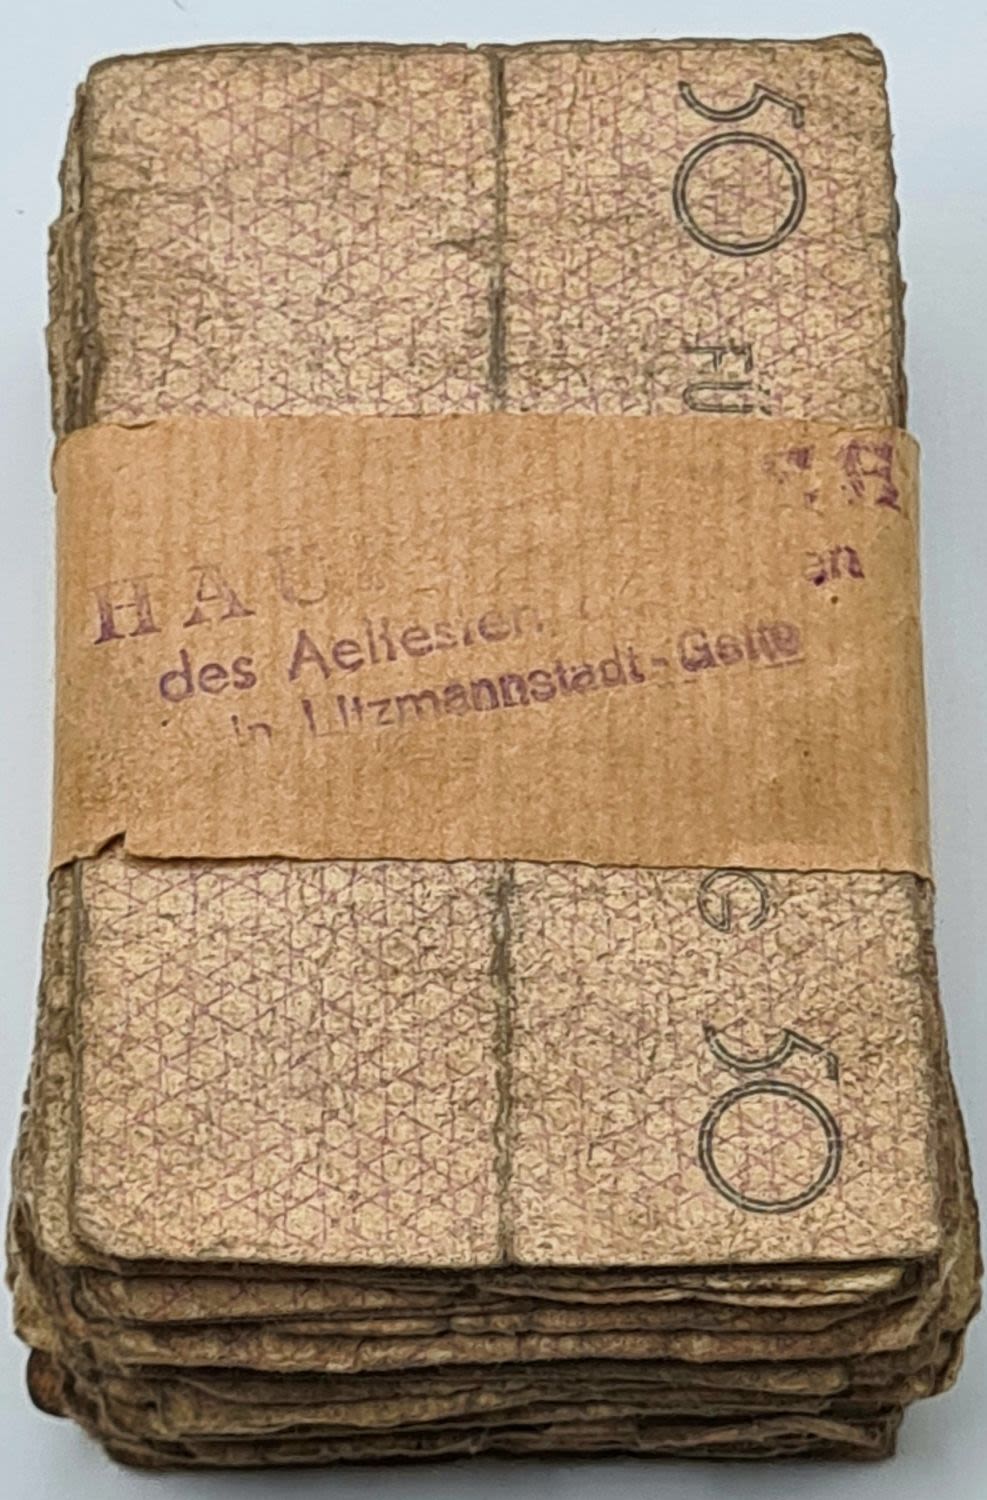 50
FÜ
HAU
des Aeltesten
in Litzmannstadt-Getto
en
G
50